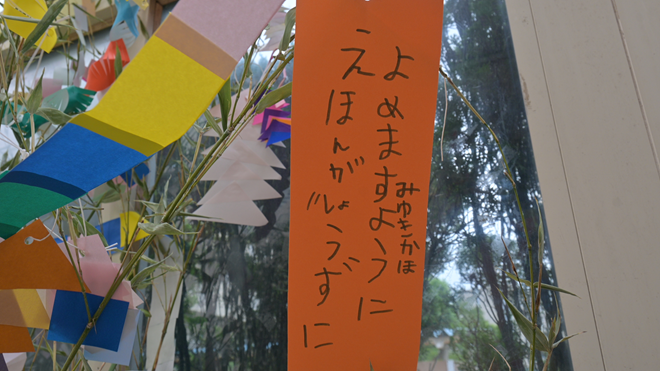 えほんがじょうずに
よめますように
みゆきかほ